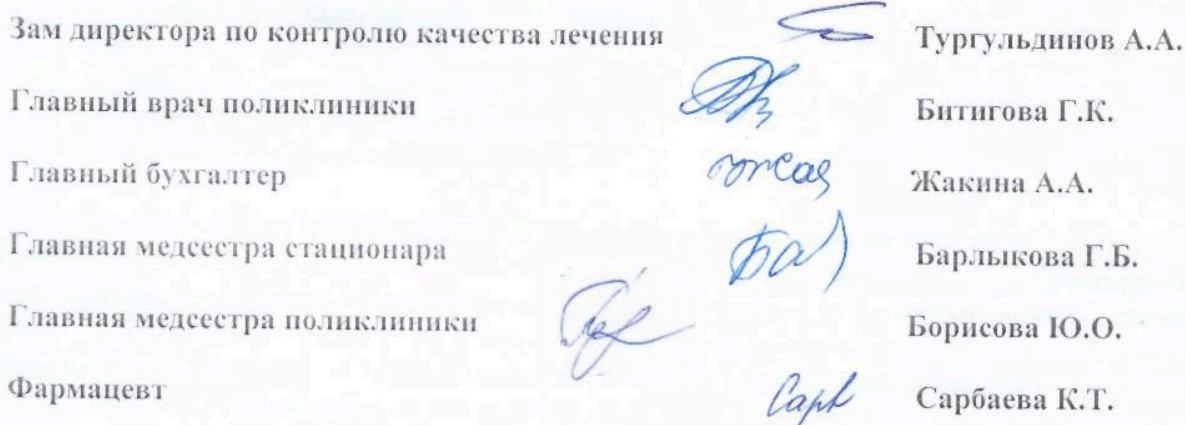 Зам директора по контролю качества лечения Тургульдинов А.А.
Главный врач поликлиники Битигова Г.К.
Главный бухгалтер Жакина А.А.
Главная медсестра стационара Барлыкова Г.Б.
Главная медсестра поликлиники Борисова Ю.О.
Фармацевт Сарбаева К.Т.